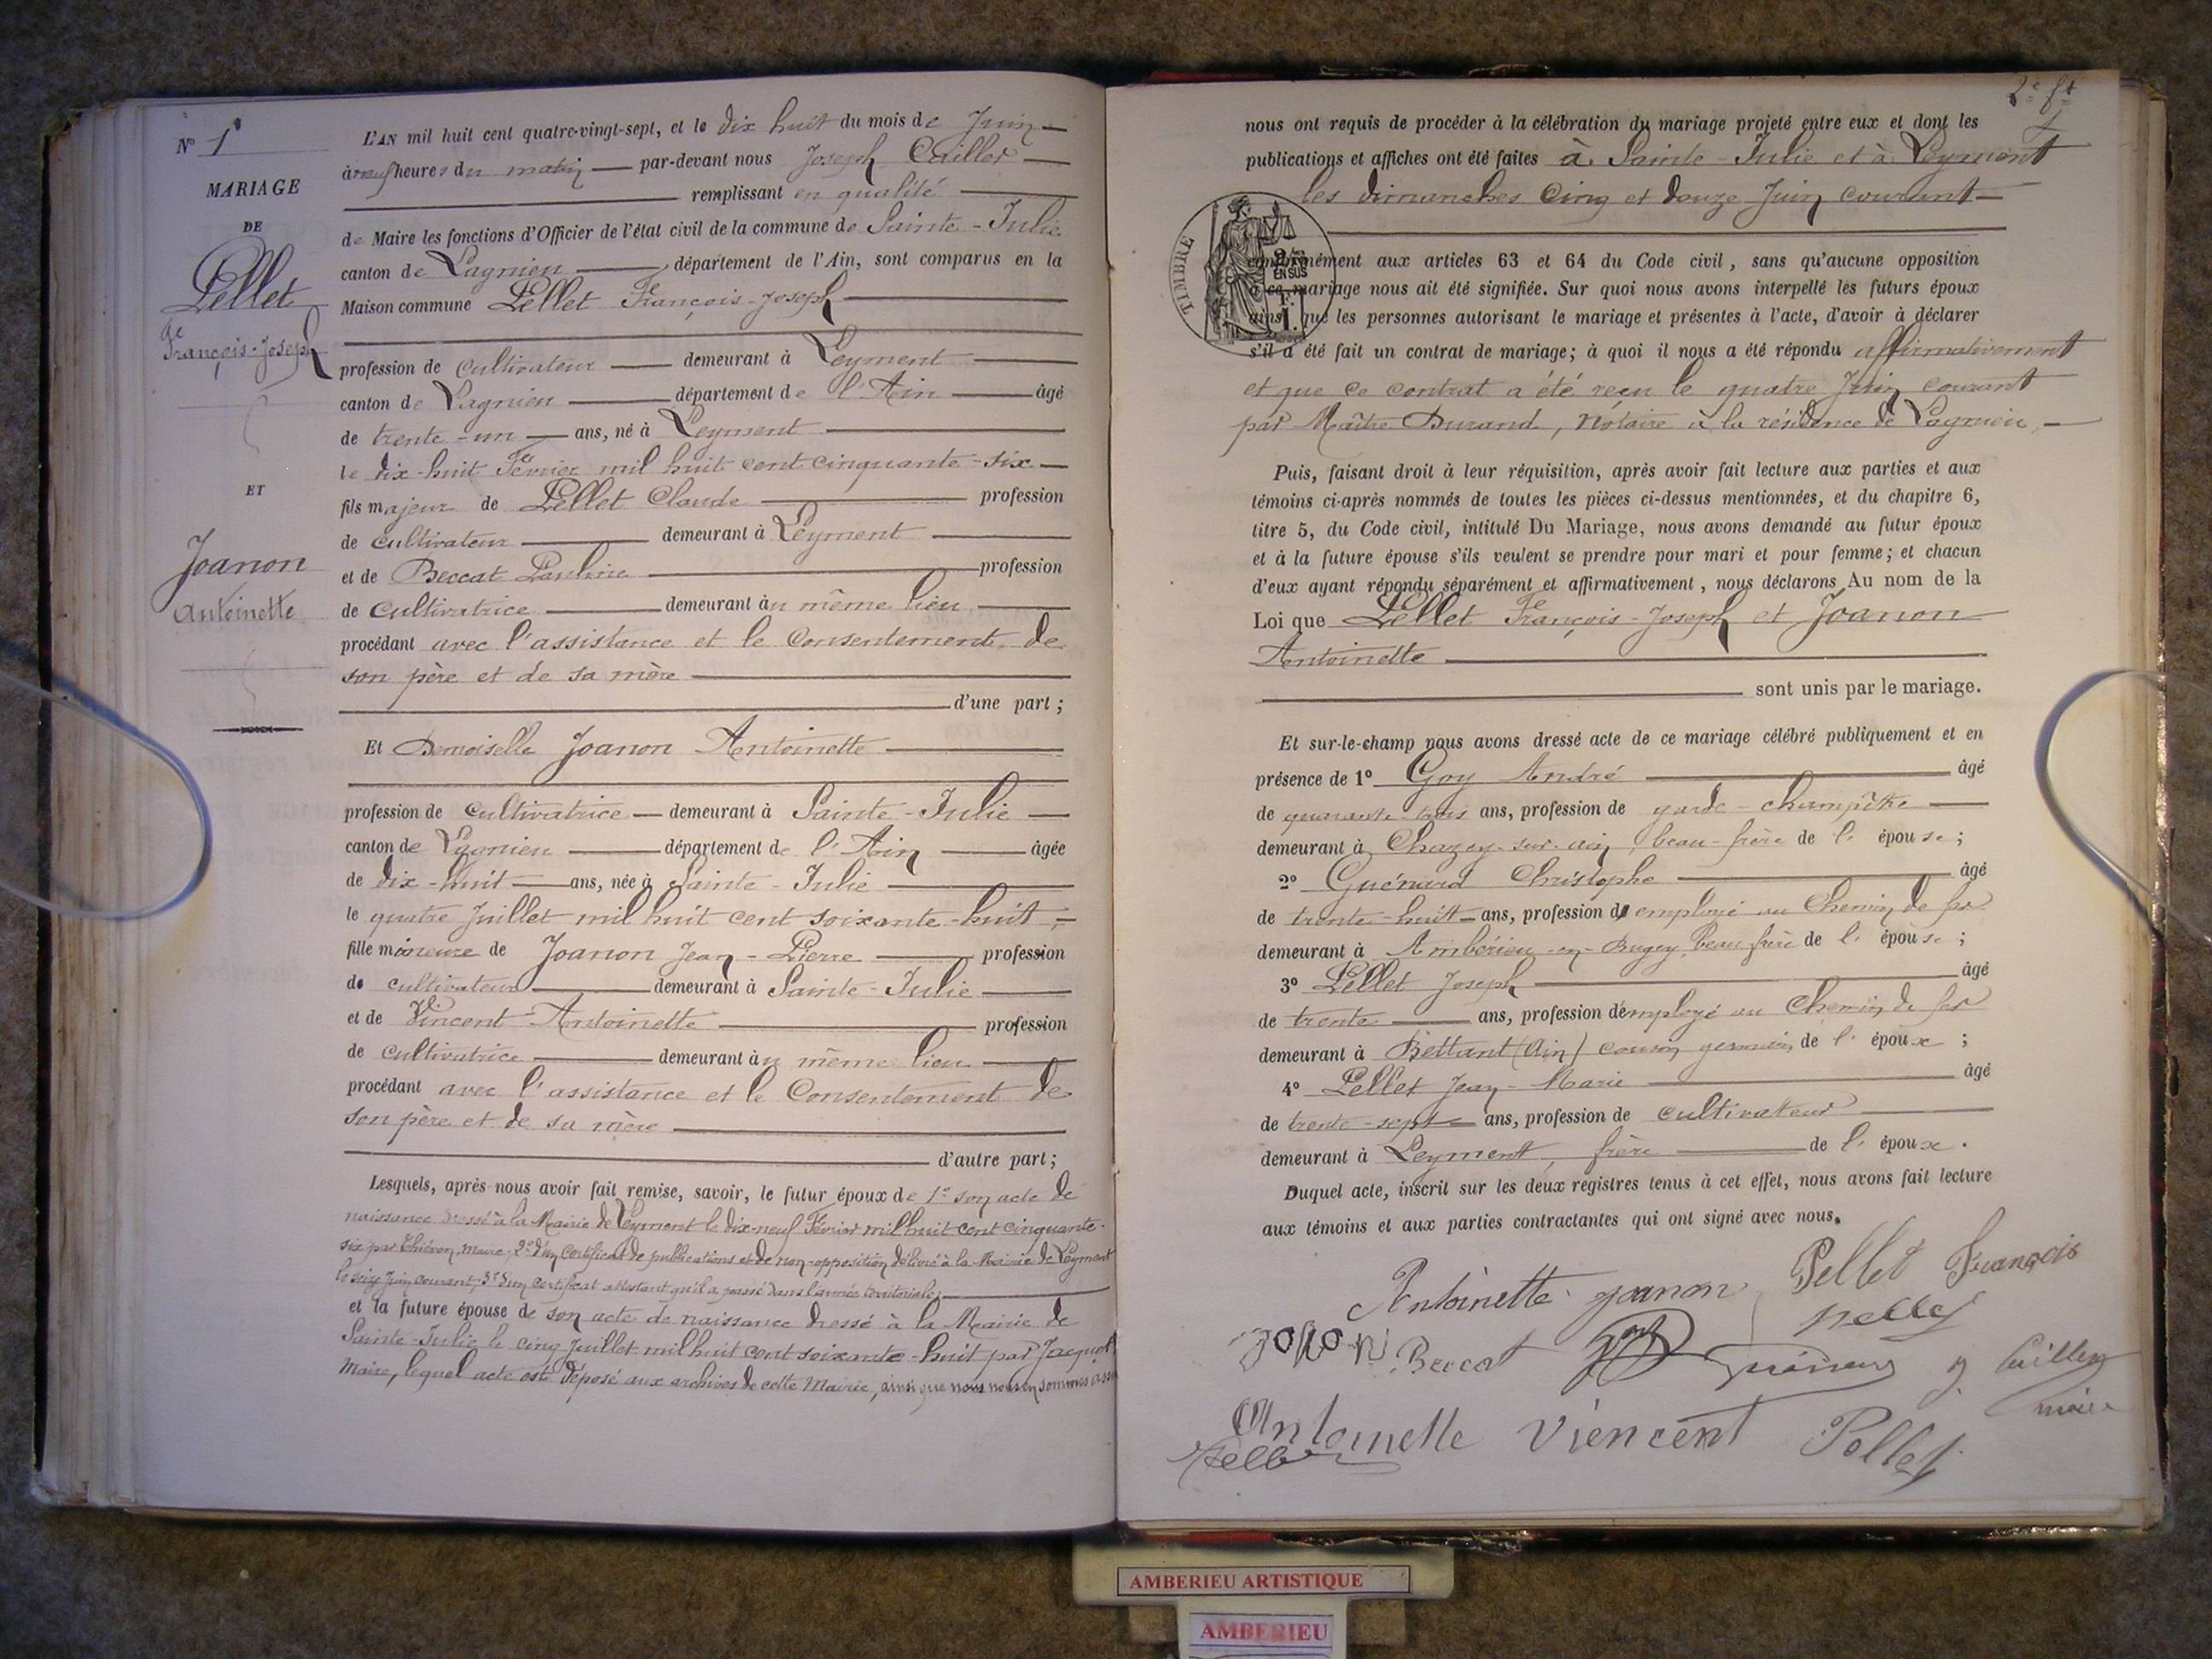 N° 1
MARIAGE
DE
Pellet
François-Joseph
ET
Joanon
Antoinette
L'AN mil huit cent quatre-vingt-sept, et le dix huit du mois de Juin
à neuf heures du matin par-devant nous Joseph Cailler
remplissant en qualité
de Maire les fonctions d'Officier de l'état civil de la commune de Sainte-Julie
canton de Lagnieu département de l'Ain, sont comparus en la
Maison commune Pellet François-Joseph
profession de cultivateur demeurant à Leyment
canton de Lagnieu département de l'Ain âgé
de trente-un ans, né à Leyment
le dix-huit Février mil huit cent cinquante-six
fils majeur de Pellet Claude profession
de cultivateur demeurant à Leyment
et de Beccat Pauline profession
de cultivatrice demeurant au même lieu
procédant avec l'assistance et le Consentement de
son père et de sa mère
d'une part ;
Et Demoiselle Joanon Antoinette
profession de cultivatrice demeurant à Sainte-Julie
canton de Lagnieu département de l'Ain âgée
de dix-huit ans, née à Sainte-Julie
le quatre Juillet mil huit cent soixante-huit,
fille mineure de Joanon Jean-Pierre profession
de cultivateur demeurant à Sainte-Julie
et de Vincent Antoinette profession
de cultivatrice demeurant au même lieu
procédant avec l'assistance et le Consentement de
son père et de sa mère
d'autre part ;
Lesquels, après nous avoir fait remise, savoir, le futur époux de 1° son acte de
naissance dressé à la Mairie de Leyment le dix-neuf Février mil huit cent cinquante-
six par Thiévon, maire; 2° d'un Certificat de publications et de non-opposition délivré à la Mairie de Leyment
le seize Juin courant; 3° d'un certificat attestant qu'il a passé dans l'armée territoriale;
et la future épouse de son acte de naissance dressé à la Mairie de
Sainte-Julie le cinq Juillet mil huit cent soixante-huit par Jacquet
Maire, lequel acte est déposé aux archives de cette Mairie, ainsi que nous nous en sommes
2e ft
nous ont requis de procéder à la célébration du mariage projeté entre eux et dont les
publications et affiches ont été faites à Sainte-Julie et à Leyment
les dimanches Cinq et douze Juin courant
TIMBRE
2/10
EN SUS
F.
1.
conformément aux articles 63 et 64 du Code civil, sans qu'aucune opposition
à ce mariage nous ait été signifiée. Sur quoi nous avons interpellé les futurs époux
ainsi que les personnes autorisant le mariage et présentes à l'acte, d'avoir à déclarer
s'il a été fait un contrat de mariage; à quoi il nous a été répondu affirmativement
et que ce contrat a été reçu le quatre Juin courant
par Maître Durand, Notaire à la résidence de Lagnieu,
Puis, faisant droit à leur réquisition, après avoir fait lecture aux parties et aux
témoins ci-après nommés de toutes les pièces ci-dessus mentionnées, et du chapitre 6,
titre 5, du Code civil, intitulé Du Mariage, nous avons demandé au futur époux
et à la future épouse s'ils veulent se prendre pour mari et pour femme ; et chacun
d'eux ayant répondu séparément et affirmativement, nous déclarons Au nom de la
Loi que Pellet François-Joseph et Joanon
Antoinette
sont unis par le mariage.
Et sur-le-champ nous avons dressé acte de ce mariage célébré publiquement et en
présence de 1° Goy André âgé
de quarante-trois ans, profession de garde-champêtre
demeurant à Chazey-sur-ain, beau-frère de l'épouse;
2° Guénard Christophe âgé
de trente-huit ans, profession d'employé au Chemin de fer
demeurant à Ambérieu-en-Bugey, beau frère de l'épouse ;
3° Pellet Joseph âgé
de trente ans, profession d'employé au Chemin de fer
demeurant à Bettant (Ain) cousin germain de l'époux ;
4° Pellet Jean-Marie âgé
de trente-sept ans, profession de cultivateur
demeurant à Leyment, frère de l'époux.
Duquel acte, inscrit sur les deux registres tenus à cet effet, nous avons fait lecture
aux témoins et aux parties contractantes qui ont signé avec nous.
Antoinette joanon Pellet François
pellet
Beccat J Cailler
maire
Antoinette Viencent Pellet
AMBERIEU ARTISTIQUE
AMBERIEU